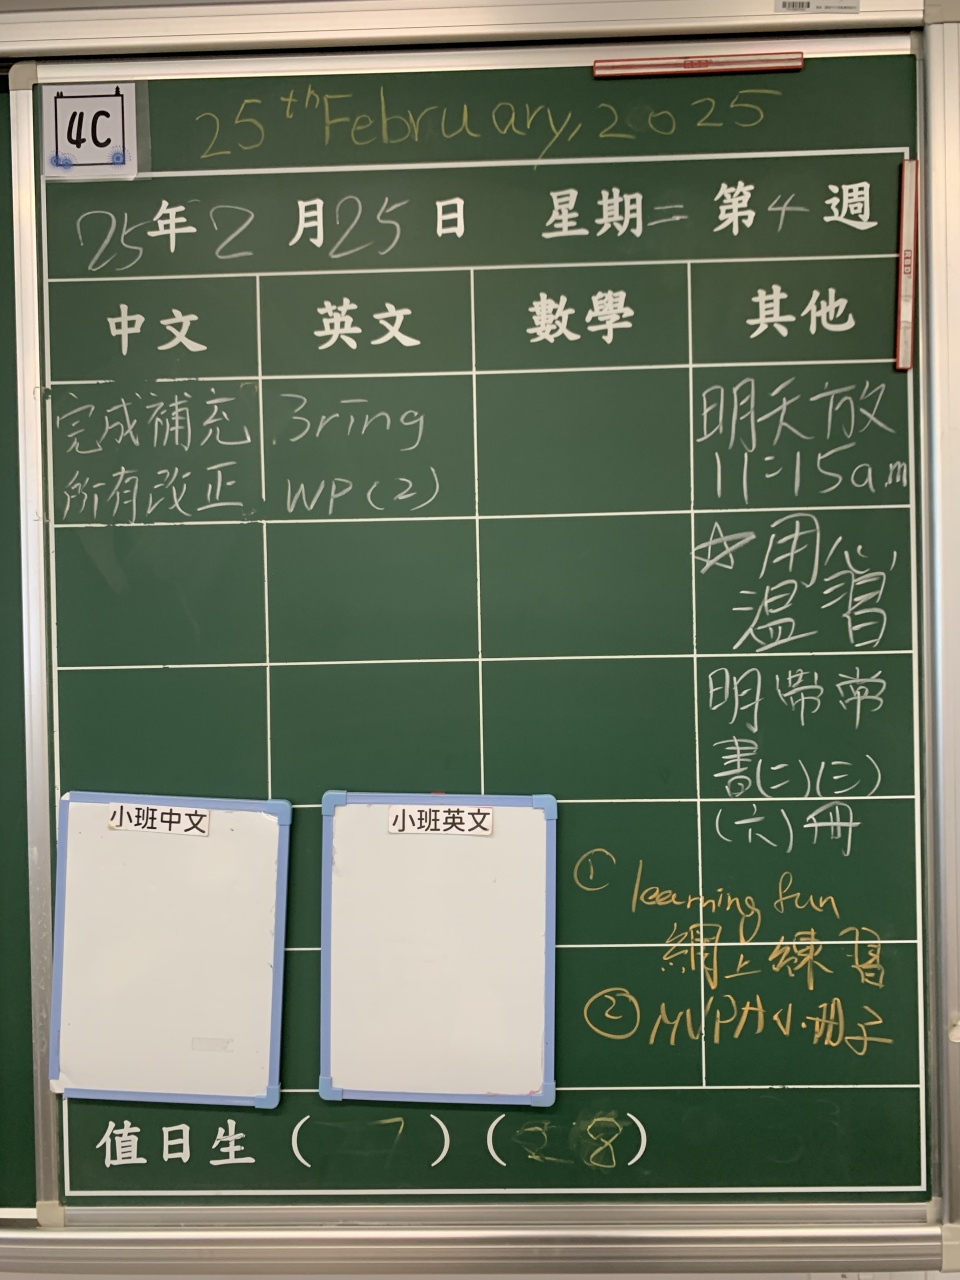 4C
25th February, 2025
25年2月25日 星期二 第4週
中文 英文 數學 其他
完成補充
所有改正
3ring
WP(2)
明天放
11:15a.m
☆用心
溫習
明帶常
書(二)(三)
(六)冊
小班中文
小班英文
① learning fun
網上練習
② MVPA小冊子
值日生 ( 7 ) ( 28 )